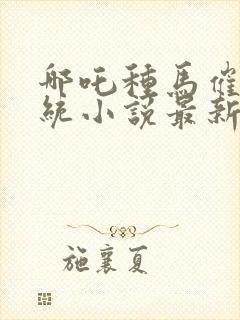 哪吒種馬催
統小說最新
施襄夏